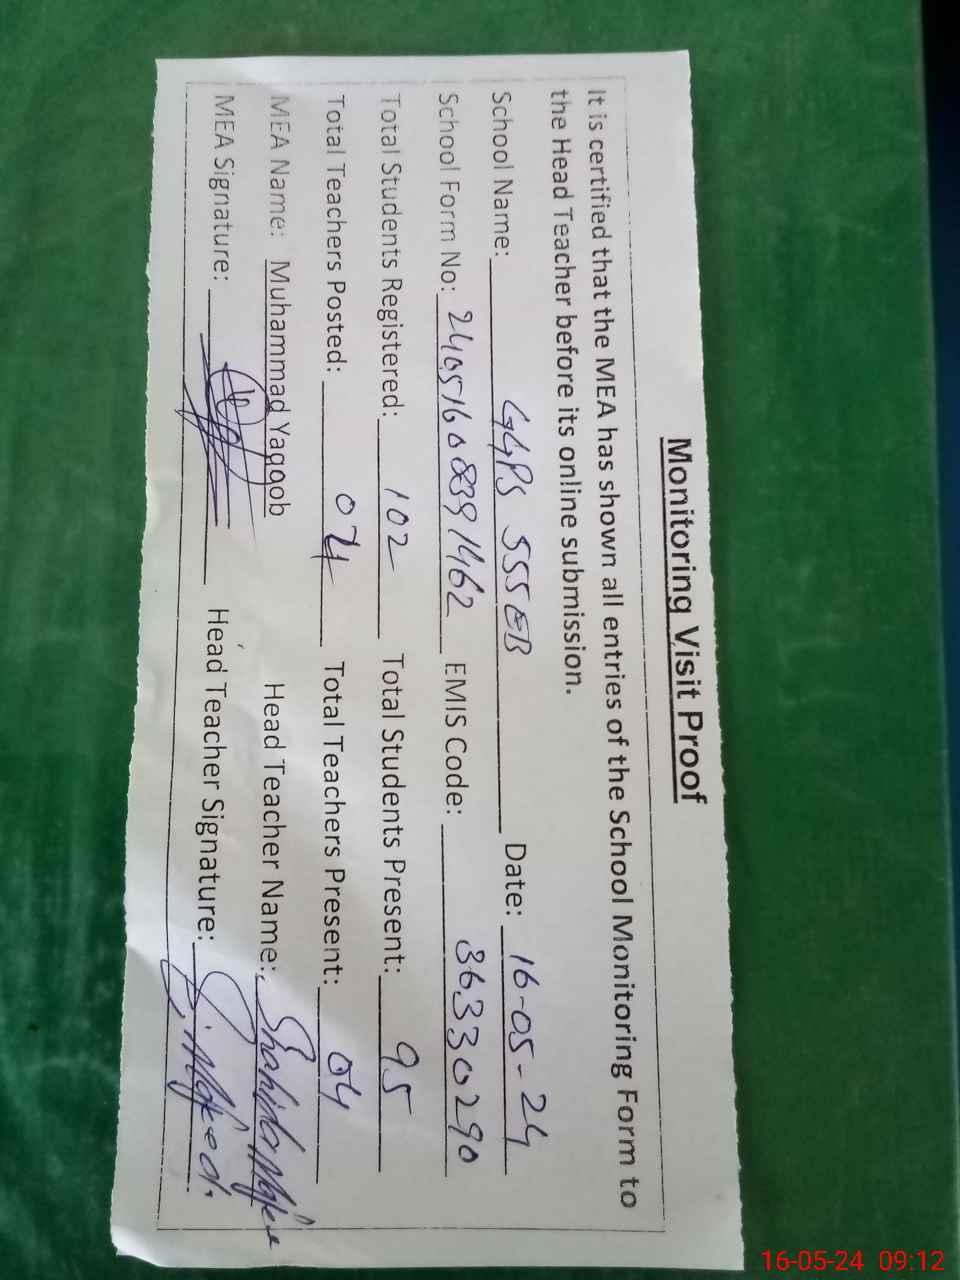 Monitoring Visit Proof
It is certified that the MEA has shown all entries of the School Monitoring Form to
the Head Teacher before its online submission.
School Name: GGPS 555EB Date: 16-05-24
School Form No: 24051608391462 EMIS Code: 36330290
Total Students Registered: 102 Total Students Present: 95
Total Teachers Posted: 04 Total Teachers Present: 04
MEA Name: Muhammad Yaqoob Head Teacher Name: Shahida
MEA Signature: Head Teacher Signature:
16-05-24 09:12